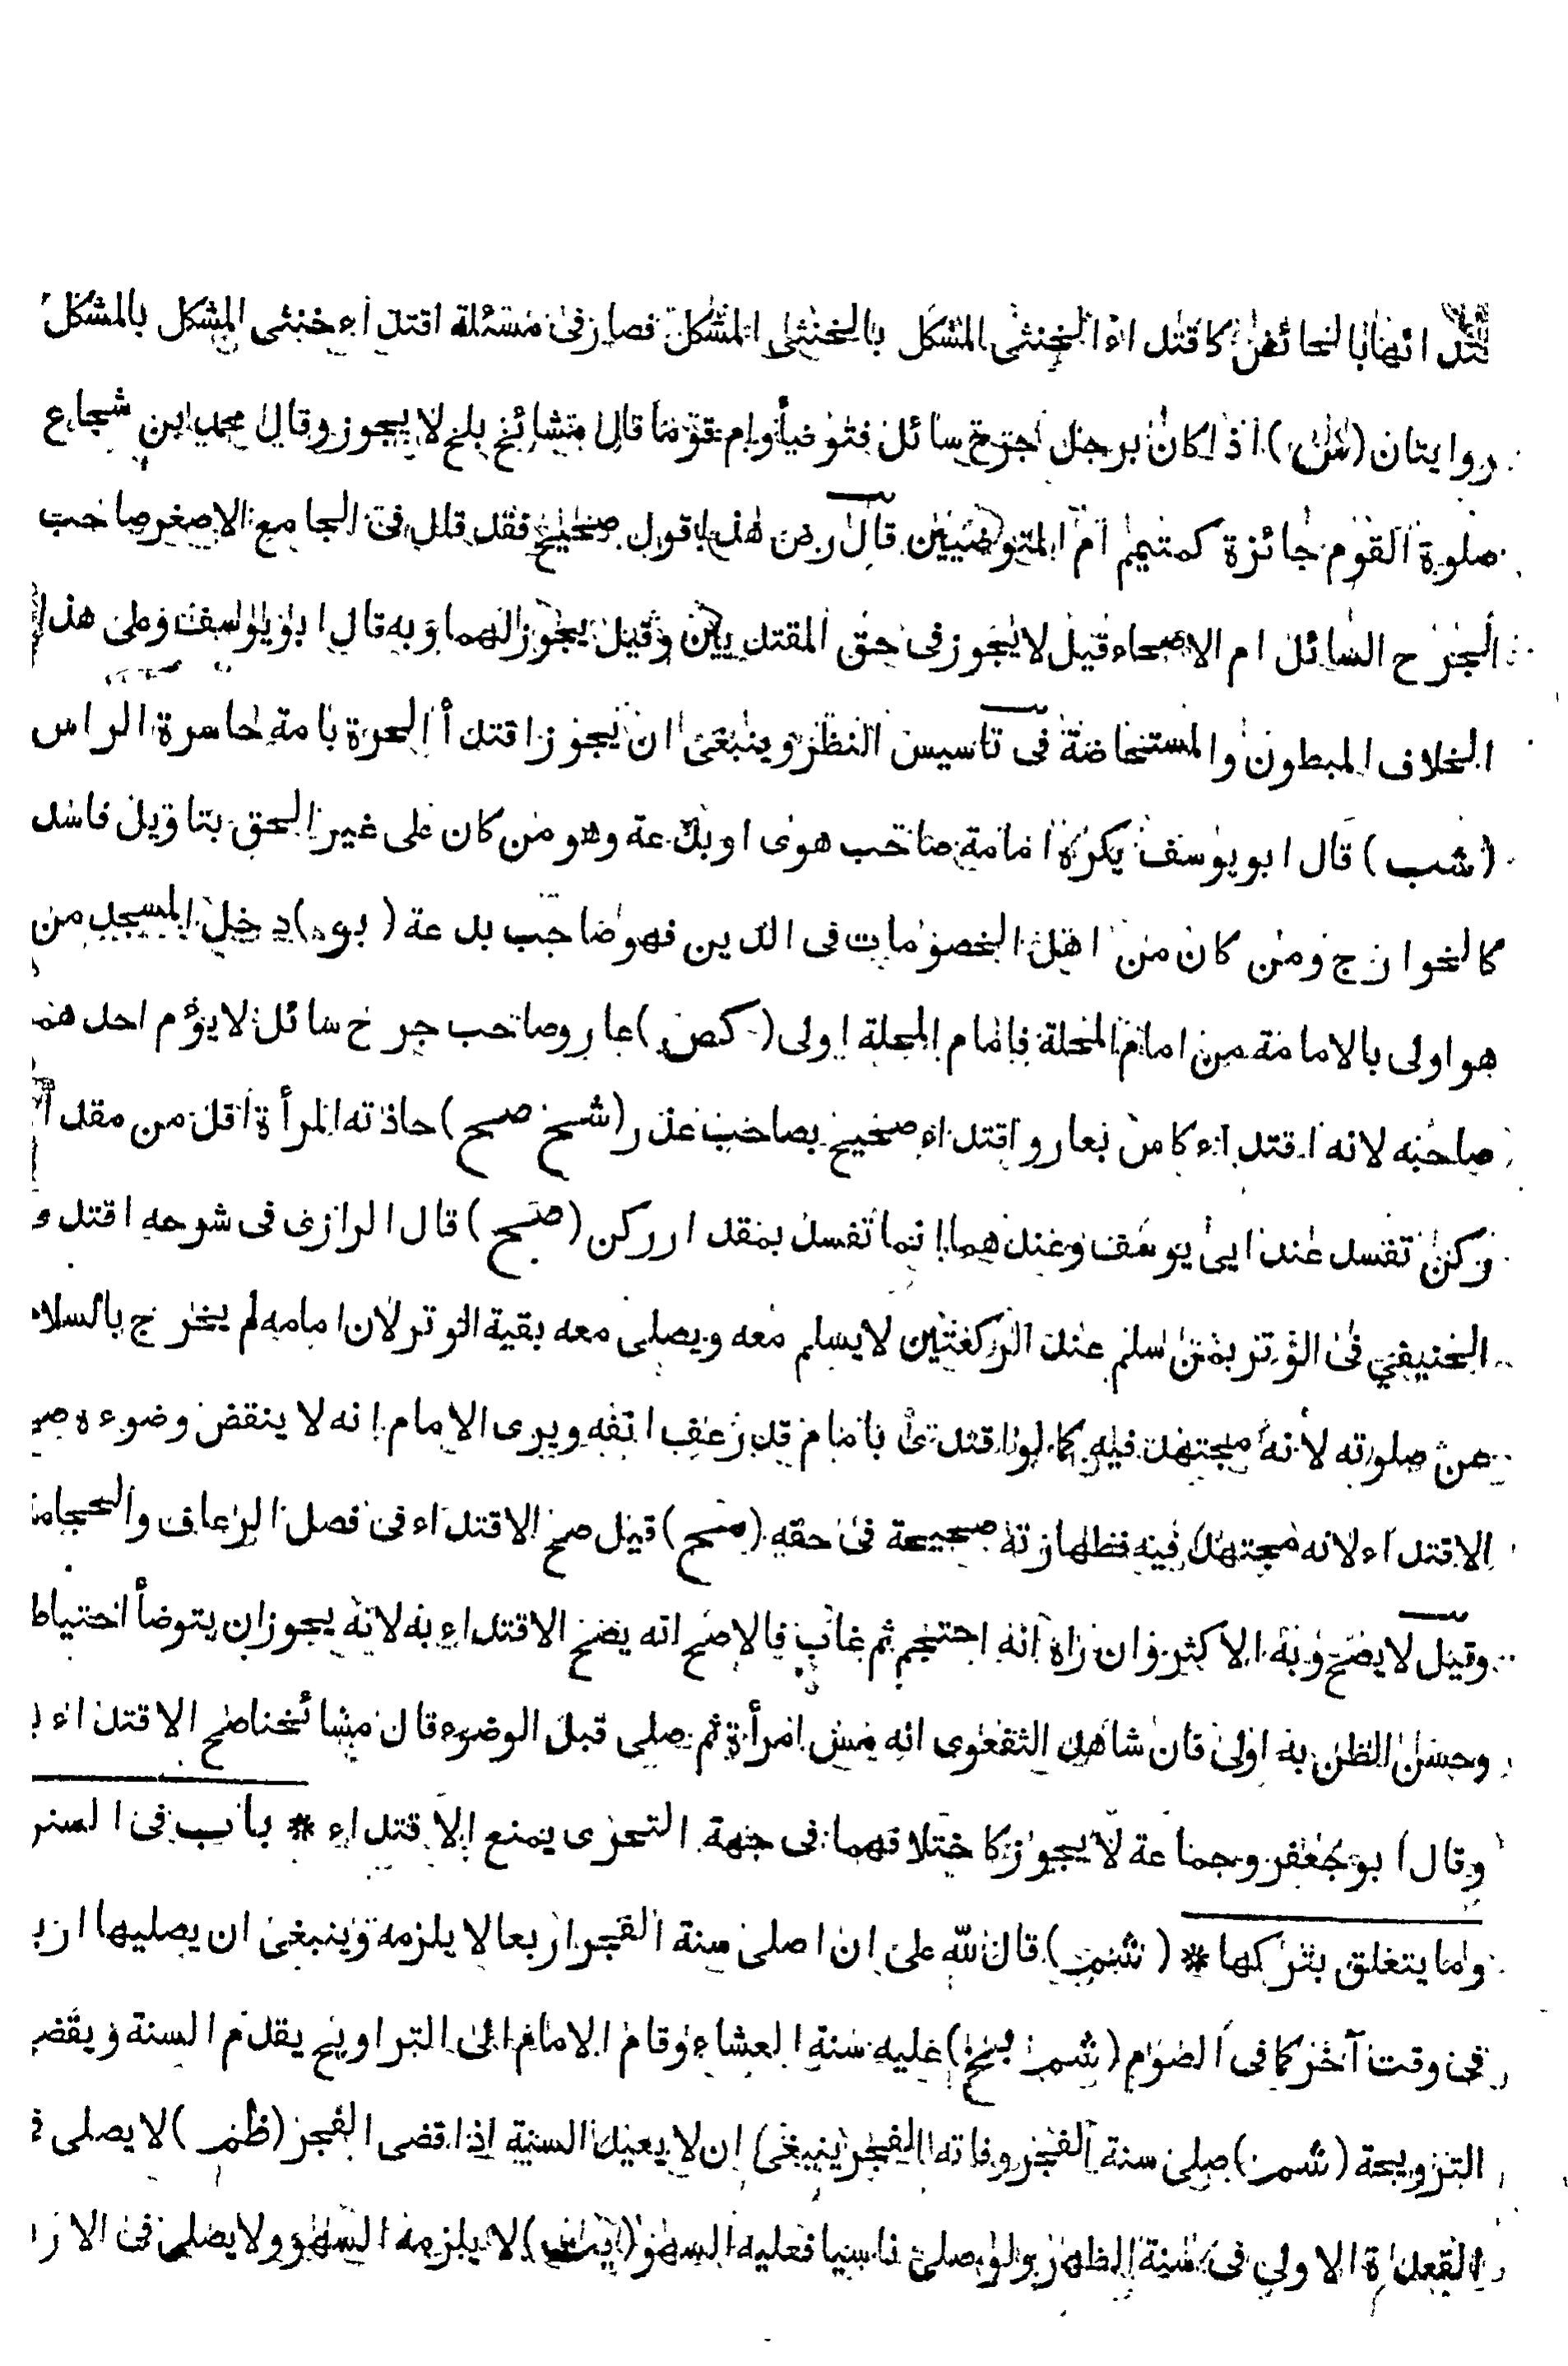 اقتدائها بالحائض كاقتداء الخنثى المشكل بالخنثى المشكل فصار فى مسئلة اقتداء خنثى المشكل بالمشكل
روايتان (شك) اذا كان برجل جرح سائل فتوضأ وام قوما قال مشائخ بلخ لا يجوز وقال محمد ابن شجاع
صلوة القوم جائزة كمتيمم ام المتوضيين قال رض هذا قول صحيح فقد قلل فى الجامع الاصغر صاحب
الجرح السائل ام الاصحاء قيل لا يجوز فى حق المقتديين وقيل يجوز لهما وبه قال ابو يوسف وعلى هذا
الخلاف المبطون والمستحاضة فى تاسيس النظر وينبغى ان يجوز اقتداء الحرة بامة حاسرة الراس
(شب) قال ابو يوسف يكره امامة صاحب هوى او بدعة وهو من كان على غير الحق بتاويل فاسد
كالخوارج ومن كان من اهل الخصومات فى الدين فهو صاحب بدعة (بو) دخل المسجد من
هو اولى بالامامة من امام المحلة فامام المحلة اولى (كص) عار وصاحب جرح سائل لا يؤم احدهما
صاحبه لانه اقتداء كاس بعار واقتداء صحيح بصاحب عذر (شح صح) حاذته المرأة اقل من مقدار
ركن تفسد عند ابى يوسف وعندهما انما تفسد بمقدار ركن (صح) قال الرازى فى شرحه اقتد و
الحنيفي فى الوتر بمن سلم عند الركعتين لا يسلم معه ويصلى معه بقية الوتر لان امامه لم يخرج بالسلام
عن صلوته لانه مجتهد فيه كما لو اقتدى بامام قد رعف انفه ويرى الامام انه لا ينقض وضوءه صح
الاقتداء لانه مجتهد فيه فطهارته صحيحة فى حقه (صح) قيل صح الاقتداء فى فصل الرعاف والحجامة
وقيل لا يصح وبه الاكثر وان راه انه احتجم ثم غاب فالاصح انه يصح الاقتداء به لانه يجوز ان يتوضأ احتياط
وحسن الظن به اولى فان شاهد الشفعوى انه مس امرأة ثم صلى قبل الوضوء قال مشائخنا صح الاقتداء
وقال ابو جعفر وجماعة لا يجوز كاختلافهما فى جهة التحرى يمنع الاقتداء * باب فى السنن
وما يتعلق بتركها * (شم) قال لله على ان اصلى سنة الفجر اربعا لا يلزمه وينبغى ان يصليها
فى وقت آخر كما فى الصوم (شم بخ) عليه سنة العشاء وقام الامام الى التراويح يقدم السنة ويقض
الترويحة (شم) صلى سنة الفجر وفاته الفجر ينبغى ان لا يعيد السنة اذا قضى الفجر (ظم) لا يصلى
القعدة الاولى فى سنة الظهر ولو صلى ناسيا فعليه السهو لا يلزمه السهو ولا يصلى فى